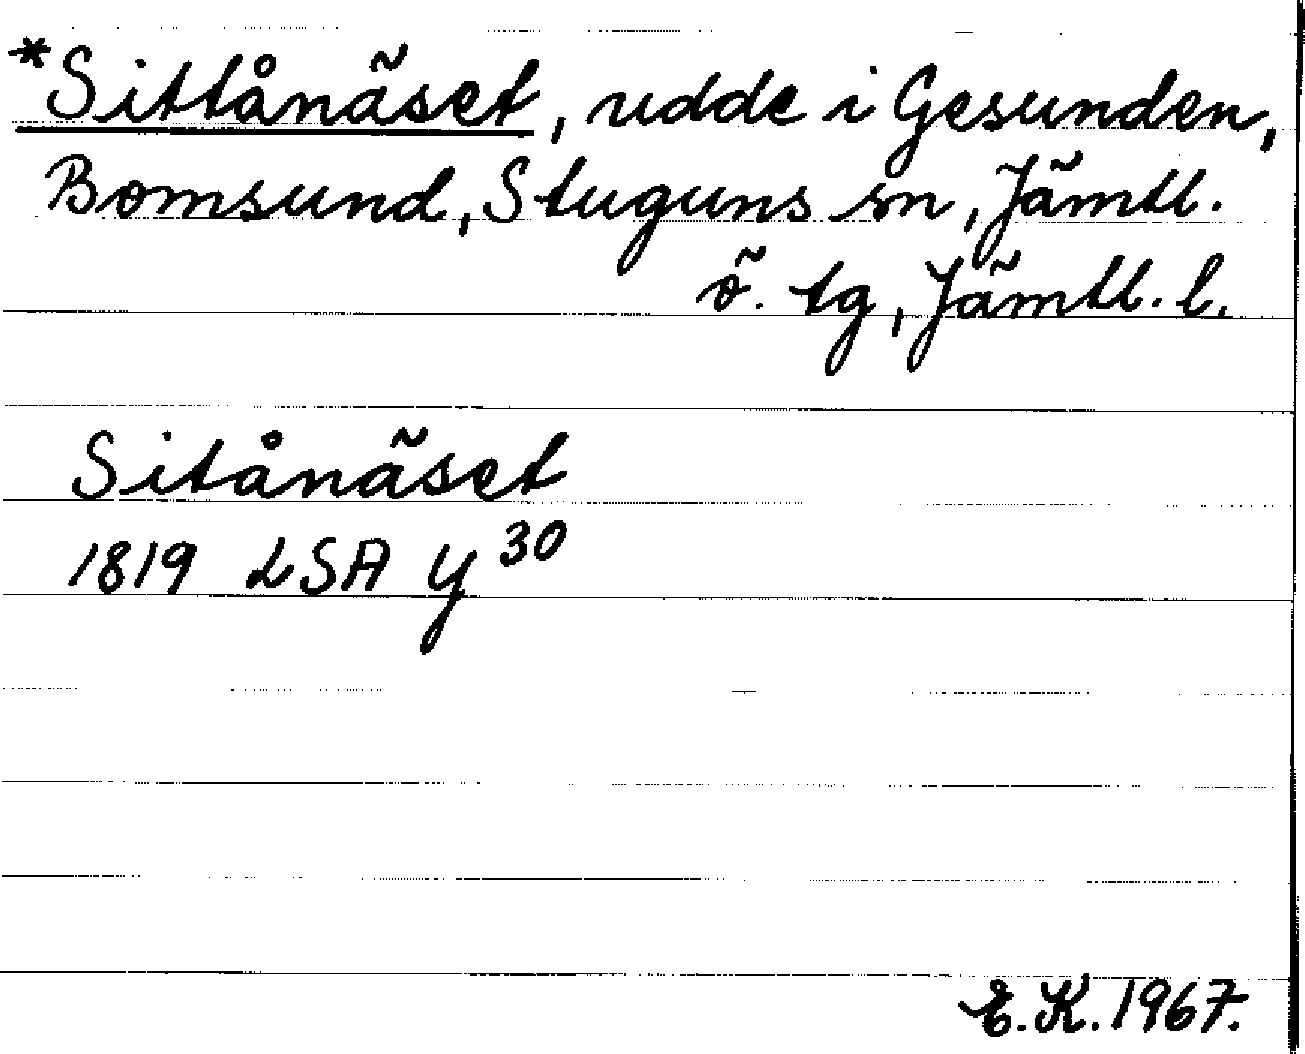 *Sittånäset, udde i Gesunden,
Bomsund, Stuguns sn, Jämtl.
ö. tg, Jämtl. l.
Sitånäset
1819 LSA Y 30
E.K. 1967.